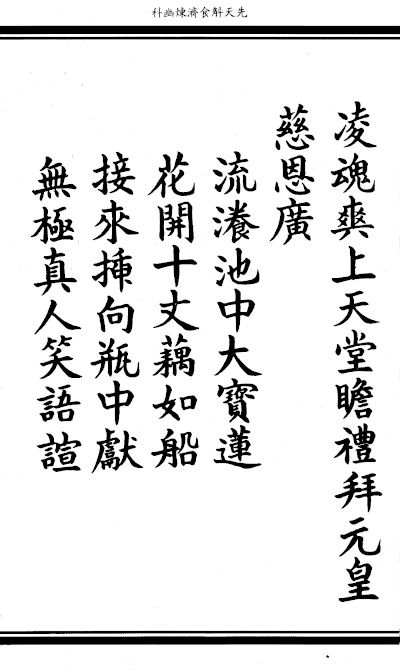 先天斛食濟煉幽科
凌魂爽上天堂瞻禮拜元皇
慈恩廣
流瀁池中大寶蓮
花開十丈藕如船
接來揷向瓶中獻
無極真人笑語諠